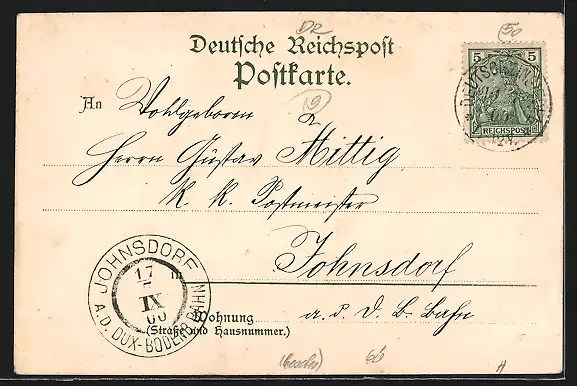 DR
50
Deutsche Reichspost
Postkarte.
5 5
REICHSPOST
19
An Wohlgeboren
Herrn Gustav Mittig,
k. k. Postmeister
Johnsdorf
a. d. D. B. Bahn
in
Wohnung
(Straße und Hausnummer.)
JOHNSDORF
17
IX
00
A.D. DUX-BODENB. BAHN
66
H